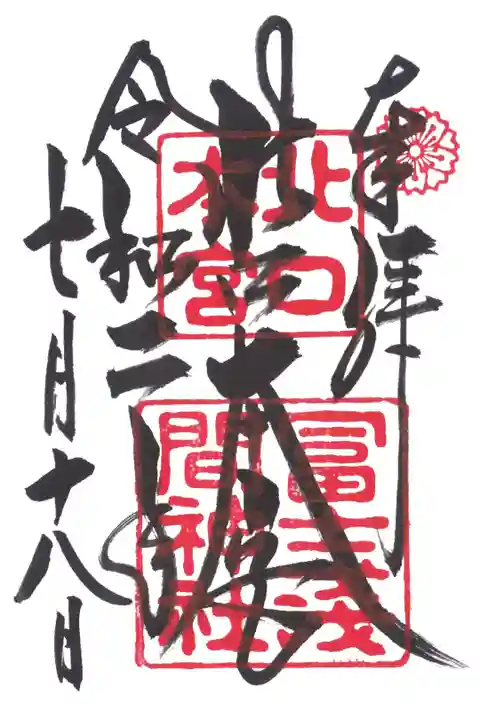 奉拝
北口本宮
北口
本宮
冨士浅
間神社
令和二年
七月十八日